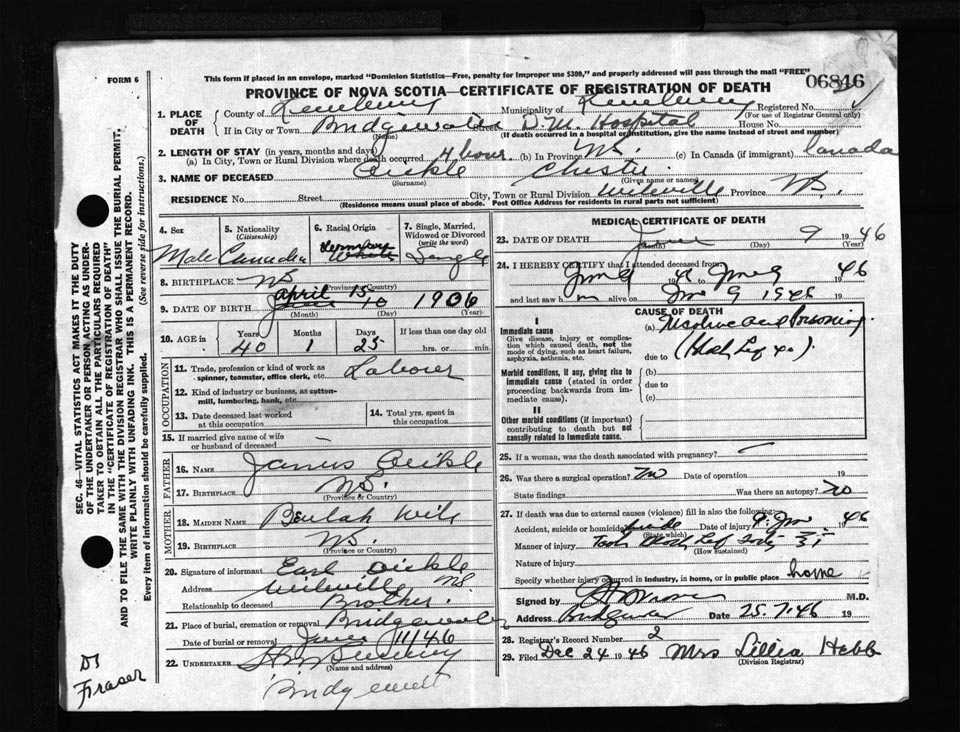 FORM 6
This form if placed in an envelope, marked "Dominion Statistics—Free, penalty for improper use $300," and properly addressed will pass through the mail "FREE"
06846
PROVINCE OF NOVA SCOTIA—CERTIFICATE OF REGISTRATION OF DEATH
1. PLACE OF DEATH
County of Lunenburg Municipality of Lunenburg Registered No.
(For use of Registrar General only)
If in City or Town Bridgewater Street D.M. Hospital House No.
(Name) (If death occurred in a hospital or institution, give the name instead of street and number)
2. LENGTH OF STAY (in years, months and days)
(a) In City, Town or Rural Division where death occurred 4 hour. (b) In Province NS. (c) In Canada (if immigrant) Canada
3. NAME OF DECEASED
(Surname) (Given name or names)
RESIDENCE No. Street City, Town or Rural Division Wileville Province NS.
(Residence means usual place of abode. Post Office Address for residents in rural parts not sufficient)
SEC. 46—VITAL STATISTICS ACT MAKES IT THE DUTY
OF THE UNDERTAKER OR PERSON ACTING AS UNDER-
TAKER TO OBTAIN ALL THE PARTICULARS REQUIRED
IN THE "CERTIFICATE OF REGISTRATION OF DEATH"
AND TO FILE THE SAME WITH THE DIVISION REGISTRAR WHO SHALL ISSUE THE BURIAL PERMIT.
WRITE PLAINLY WITH UNFADING INK. THIS IS A PERMANENT RECORD.
Every item of information should be carefully supplied. (See reverse side for instructions.)
4. Sex
Male
5. Nationality
(Citizenship)
Canadian
6. Racial Origin
White
7. Single, Married, Widowed or Divorced
(write the word)
Single
8. BIRTHPLACE NS
(Province or Country)
9. DATE OF BIRTH April 15 1906
(Month) (Day) (Year)
10. AGE in Years Months Days If less than one day old
40 1 25 hrs. or min.
OCCUPATION
11. Trade, profession or kind of work as Labourer
spinner, teamster, office clerk, etc.
12. Kind of industry or business, as cotton-
mill, lumbering, bank, etc.
13. Date deceased last worked
at this occupation
14. Total yrs. spent in
this occupation
15. If married give name of wife
or husband of deceased —
FATHER
16. NAME James
17. BIRTHPLACE NS.
(Province or Country)
MOTHER
18. MAIDEN NAME Beulah Wile
19. BIRTHPLACE NS.
(Province or Country)
20. Signature of informant Earl
Address Wileville NS
Relationship to deceased Brother.
21. Place of burial, cremation or removal Bridgewater
Date of burial or removal June 11/46
22. UNDERTAKER
(Name and address)
Dr
Fraser
MEDICAL CERTIFICATE OF DEATH
23. DATE OF DEATH June 9 1946
(Month) (Day) (Year)
24. I HEREBY CERTIFY that I attended deceased from
June 9 to June 9 1946
and last saw h m alive on June 9 1946 19
CAUSE OF DEATH
I
Immediate cause
Give disease, injury or complica-
tion which caused death, not the
mode of dying, such as heart failure,
asphyxia, asthenia, etc.
(a) Poisoning
due to (Black Leaf 40).
Morbid conditions, if any, giving rise to
immediate cause (stated in order
proceeding backwards from im-
mediate cause).
(b)
due to
(c)
II
Other morbid conditions (if important)
contributing to death but not
causally related to immediate cause.
25. If a woman, was the death associated with pregnancy?
26. Was there a surgical operation? no Date of operation 19
State findings Was there an autopsy? no
27. If death was due to external causes (violence) fill in also the following:
Accident, suicide or homicide Suicide Date of injury 9. June 1946
(State which)
Manner of injury Took Black Leaf Forty
(How sustained)
Nature of injury
Specify whether injury occurred in industry, in home, or in public place home
Signed by M.D.
Address Date 25.7.46 19
28. Registrar's Record Number 2
29. Filed Dec 24 1946 Mrs Lillia Hebb
(Division Registrar)